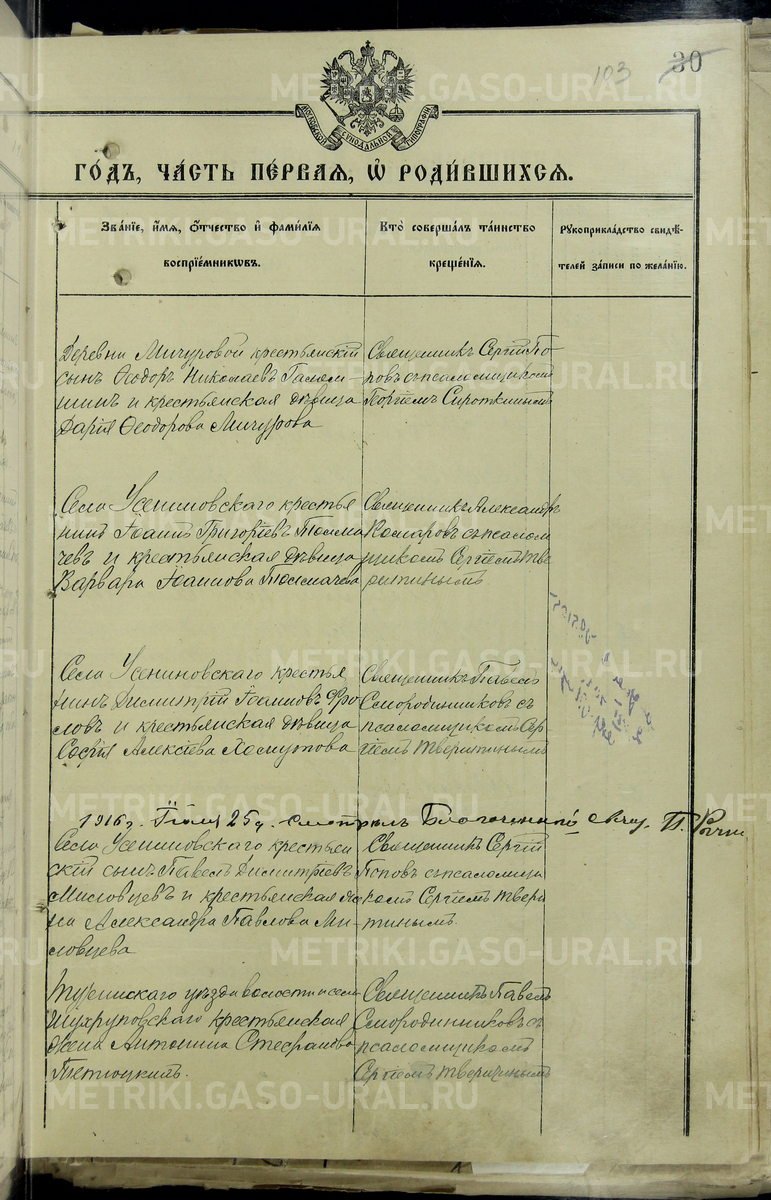 103 30
МОСКОВСКОЙ СѴНОДАЛЬНОЙ ТИПОГРАФІИ
METRIKI.GASO-URAL.RU
ГО́ДЪ, ЧА́СТЬ ПЕ́РВАЯ, Ѡ РОДИ́ВШИХСЯ.
Зва́нїе, и́мя, о́тчество и фами́лїя
воспрїе́мниковъ.
Кто̀ соверша́лъ та́инство
креще́нїя.
Рꙋкоприкла́дство свидѣ́-
телей за́писи по жела́нїю.
Деревни Мичуровой крестьянскій
сынъ Ѳеодоръ Николаевъ
и крестьянская дѣвица
Дарія Ѳеодорова Мичурова
Священникъ Сергій По-
повъ съ псаломщикомъ
Георгіемъ Сироткинымъ
Села Усениновскаго крестья
нинъ Іоаннъ Григоріевъ Толма
чевъ и крестьянская дѣвица
Варвара Іоаннова Толмачева
Священникъ Александръ
Комаровъ съ псалом
щикомъ Сергіемъ Тве
ритинымъ
Села Усениновскаго крестья
нинъ Димитрій Іоанновъ Фро
ловъ и крестьянская дѣвица
Софія Алексіева Хомутова
Священникъ Павелъ
Смородинниковъ съ
псаломщикомъ Сер
гіемъ Тверитинымъ
1916 г. Іюля 25 д. смотрилъ Благочинный свящ. П.
Села Усениновскаго крестьян
скій сынъ Павелъ Димитріевъ
Миловцевъ и крестьянская же
на Александра Павлова Ми
ловцева
Священникъ Сергій
Поповъ съ псаломщи
комъ Сергіемъ Твери
тинымъ.
Туринскаго уѣзда волости и села
Шухруповскаго крестьянская
жена Антонина Стефанова
Священникъ Павелъ
Смородинниковъ съ
псаломщикомъ
Сергіемъ Тверитинымъ